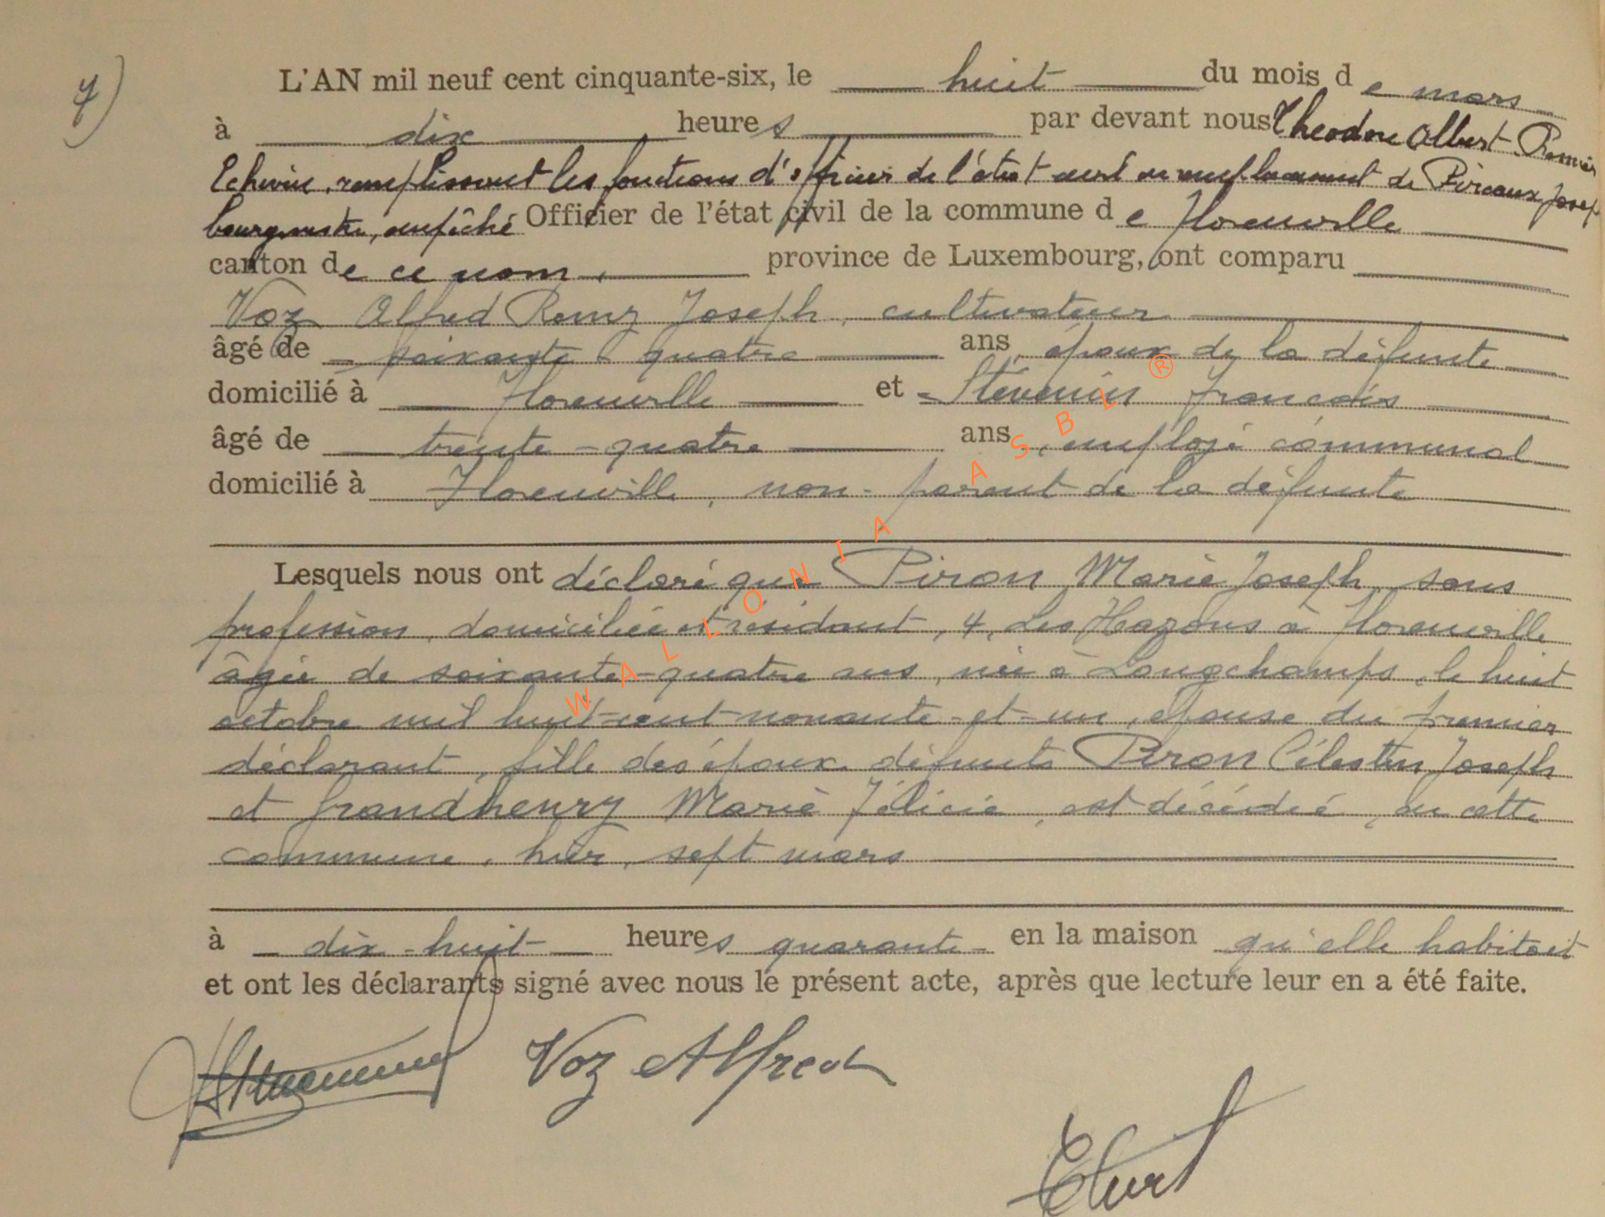 7)
L'AN mil neuf cent cinquante-six, le huit du mois de mars
à dix heures par devant nous Théodore Albert Premier
Echevin, remplissant les fonctions d'officier de l'état civil en remplacement de Pireaux Josep
bourgmestre, empêché Officier de l'état civil de la commune de Florenville
canton de ce nom, province de Luxembourg, ont comparu
Voz Alfred Remy Joseph, cultivateur
âgé de soixante quatre ans, époux de la défunte
domicilié à Florenville et Stévenin François
âgé de trente-quatre ans, employé communal
domicilié à Florenville, non-parent de la défunte
Lesquels nous ont déclaré que Piron Marie Joseph, sans
profession, domiciliée et résidant, 4, Les Hazons à Florenville
âgée de soixante-quatre ans, née à Longchamps, le huit
octobre mil huit-cent-nonante-et-un, épouse du premier
déclarant, fille des époux défunts Piron Célestin Joseph
et Grandhenry Marie Félicie, est décédée, en cette
commune, hier, sept mars
à dix-huit heures quarante en la maison qu'elle habitait
et ont les déclarants signé avec nous le présent acte, après que lecture leur en a été faite.
Voz Alfred
WALLONIA ASBL ®